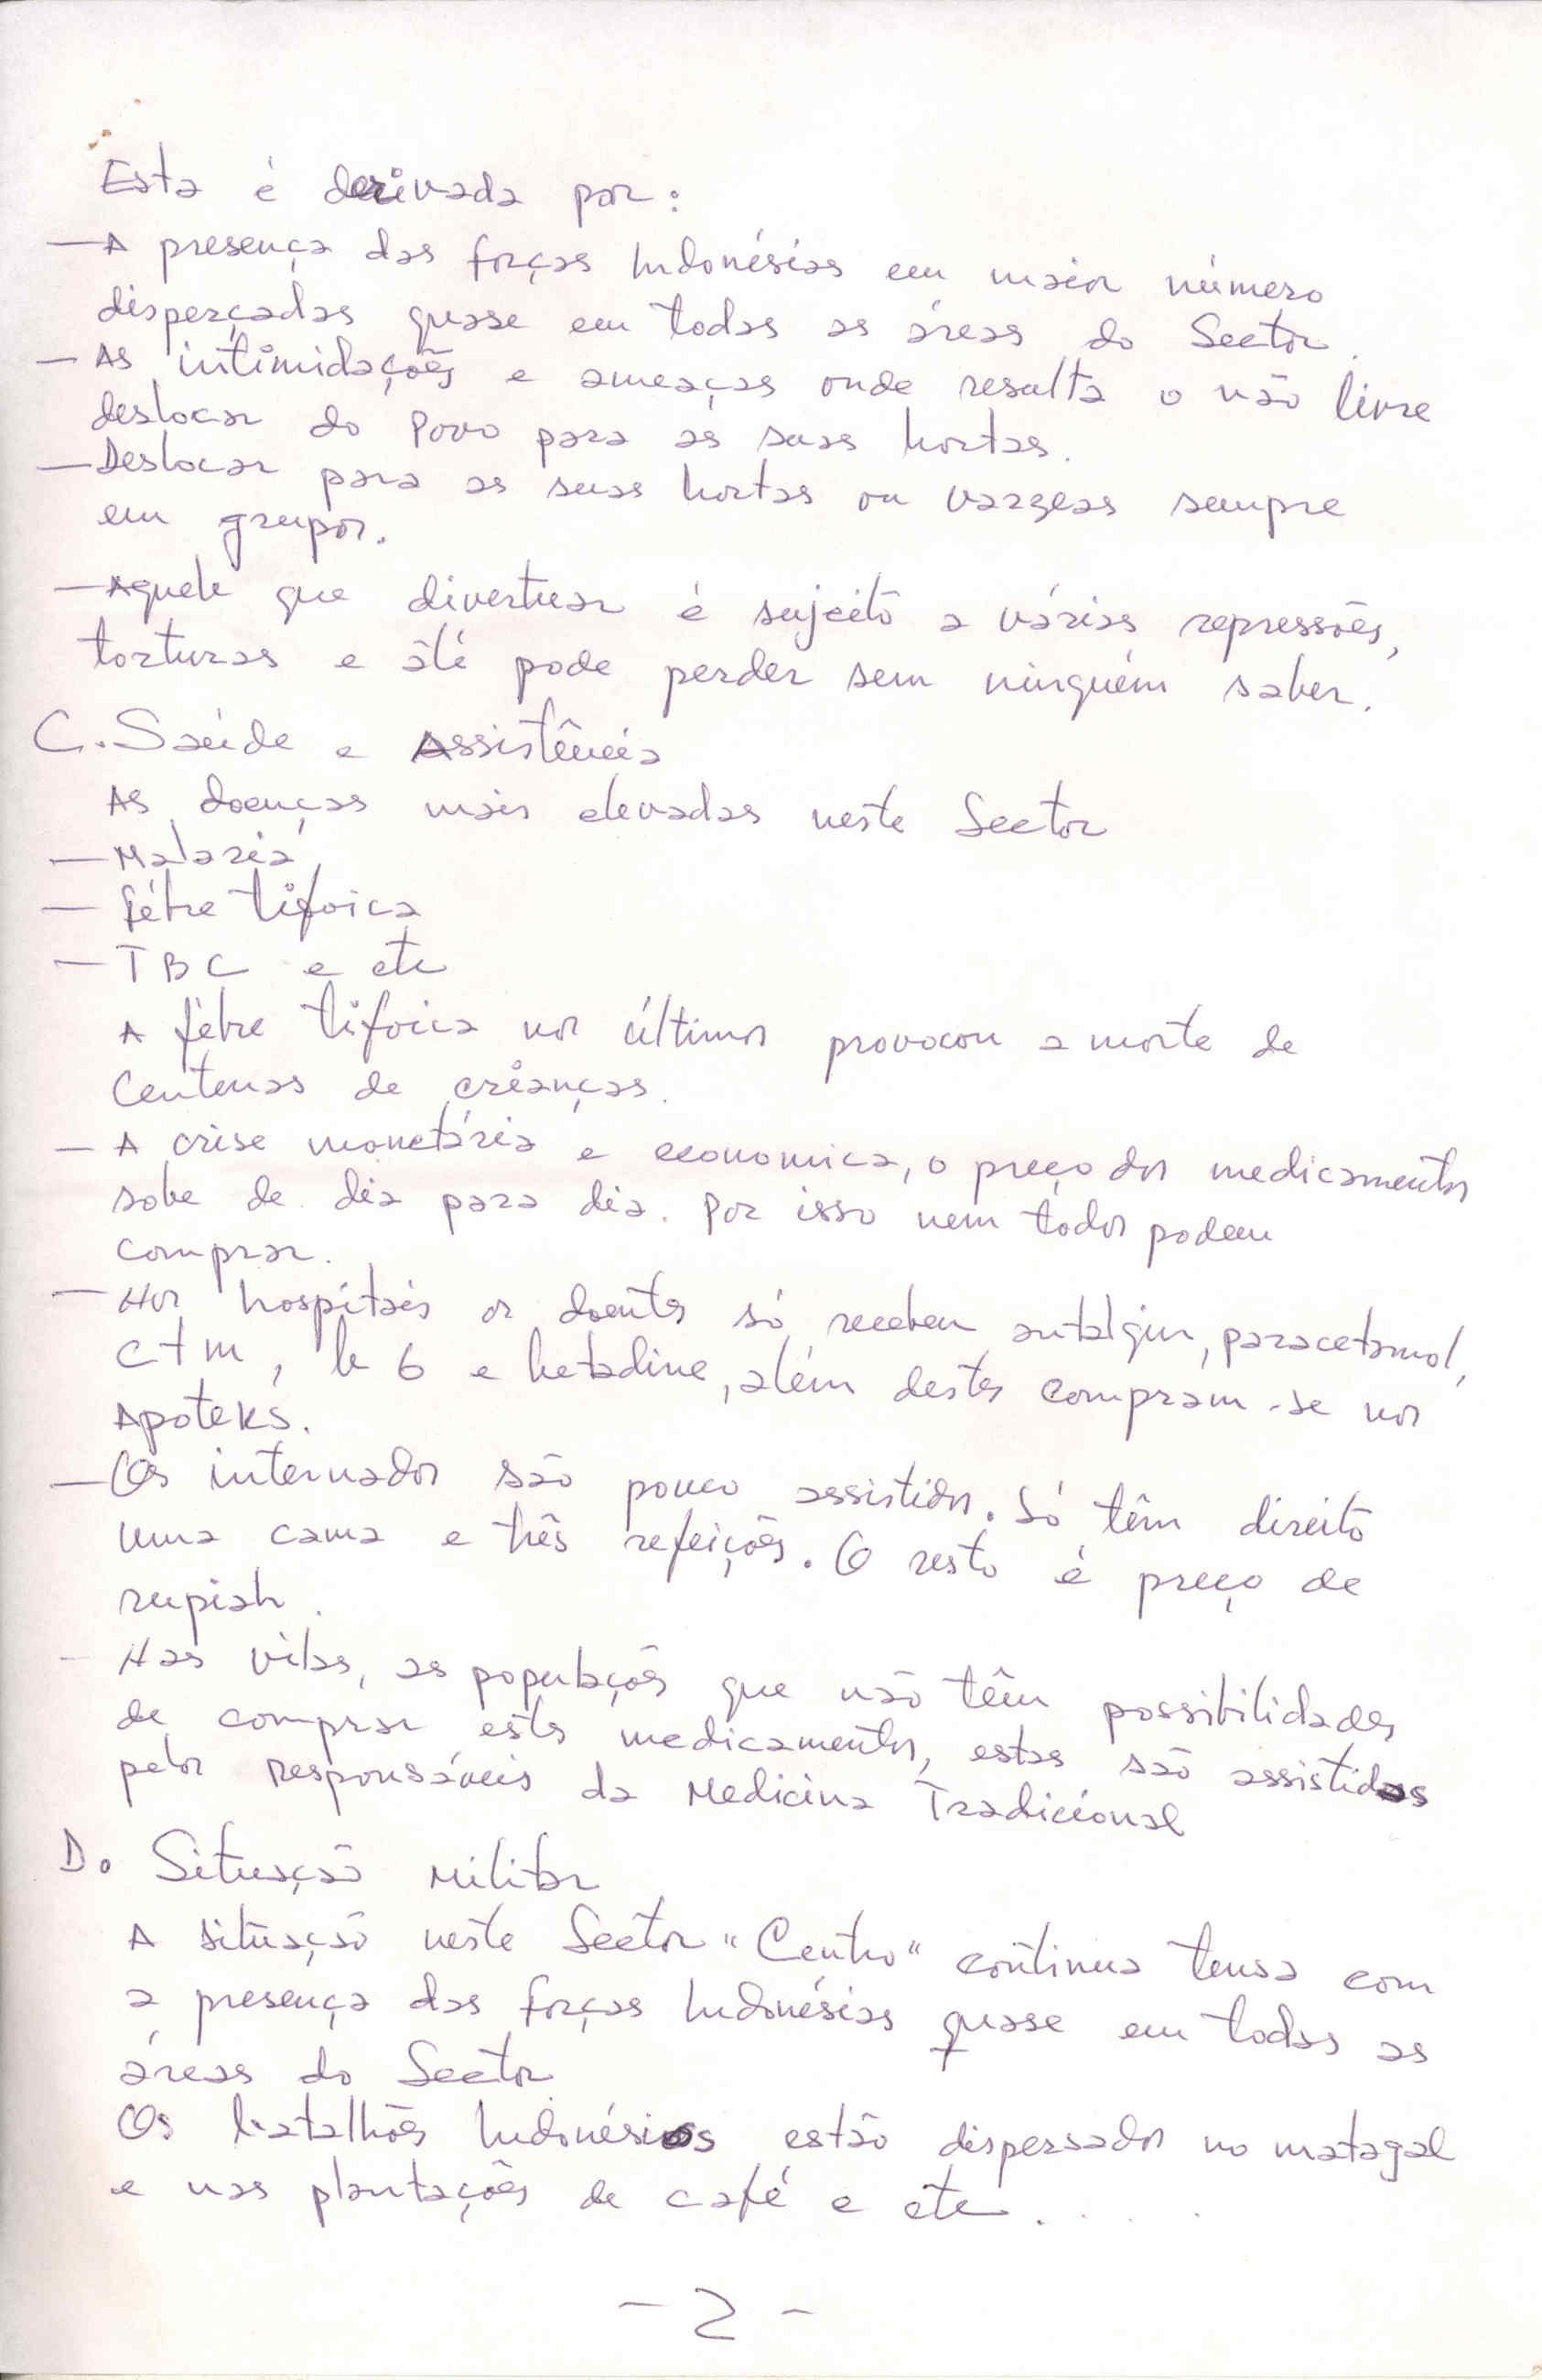 Esta é derivada por:
— A presença das forças Indonésias em maior número
disperçadas quase em todas as áreas do Sector.
— As intimidações e ameaças onde resulta o não livre
deslocar do Povo para as suas hortas.
— Deslocar para as suas hortas ou vargeas sempre
em grupos.
— Aquele que divertuar é sujeito a várias repressões,
torturas e até pode perder sem ninguém saber.
C. Saúde e Assistência
As doenças mais elevadas neste Sector
— Malaria
— fébre tifoica
— TBC e etc
A fébre tifoica nos últimos provocou a morte de
Centenas de crianças.
— A crise monetária e economica, o preço dos medicamentos
sobe de dia para dia. Por isso nem todos podem
comprar.
— Nos hospitais os doentes só recebem antalgin, paracetamol,
ctm, b 6 e betadine, além destes compram-se nos
Apoteks.
— Os internados são pouco assistidos. Só têm direito
uma cama e três refeições. O resto é preço de
rupiah.
- Nas vilas, as populações que não têm possibilidades
de comprar estes medicamentos, estas são assistidas
pelos responsáveis da Medicina Tradicional
D. Situação Militar
A situação neste Sector "Centro" continua tensa com
a presença das forças Indonésias quase em todas as
áreas do Sector
Os batalhões Indonésios estão dispersados no matagal
e nas plantações de café e etc. . . .
- 2 -